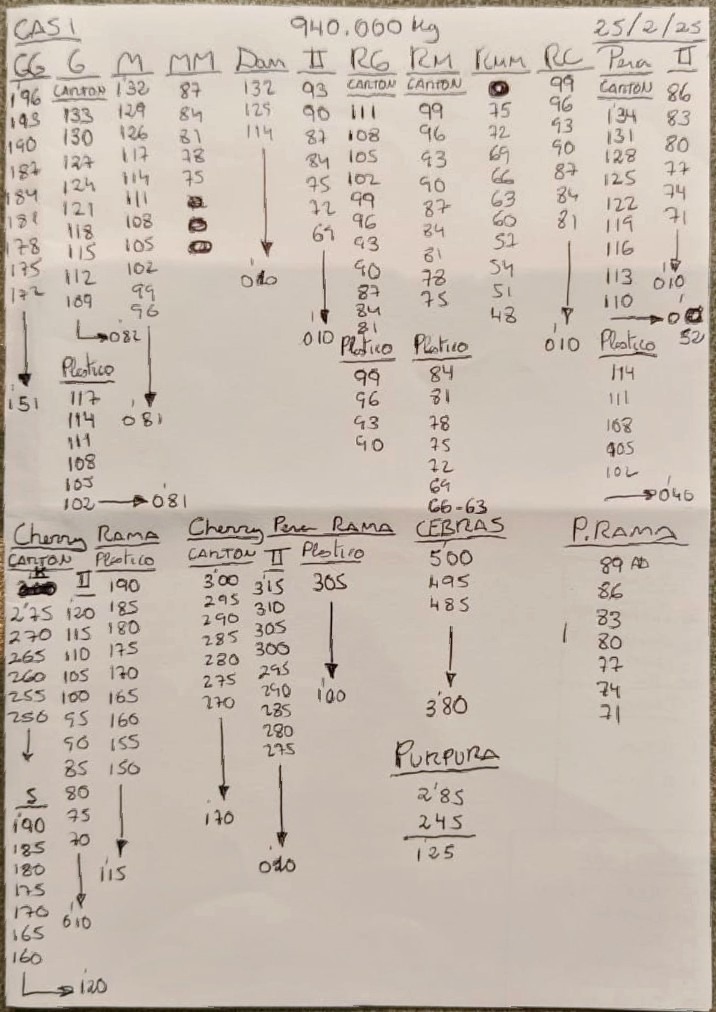 CASI 940.000 Kg 25/2/25
GG G M MM Dan II RG RM RMM RC Pera II
1'96 CARTON 1'32 87 132 93 CARTON CARTON 99 CARTON 86
193 133 129 84 125 90 111 99 75 96 134 83
190 130 126 81 114 87 108 96 72 93 131 80
187 127 117 78 84 105 93 69 90 128 77
184 124 114 75 75 102 90 66 87 125 74
181 121 111 72 99 87 63 84 122 71
178 118 108 69 96 84 60 81 119
175 115 105 93 81 116
172 112 102 90 78 54 113 010
109 99 87 75 51 110
96 84 48
082 010 81 010 52
Plastico Plastico Plastico Plastico
151 117 081 99 84 114
114 96 81 111
111 93 78 108
108 90 75 105
105 72 102
102 081 69 040
66-63
Cherry RAMA Cherry Pera RAMA CEBRAS P.RAMA
CARTON II Plastico CARTON II Plastico 5'00 89
190 3'00 315 305 495 86
2'75 120 185 295 310 485 83
270 115 180 290 305 80
265 110 175 285 300 77
260 105 170 280 295 74
255 100 165 275 290 100 3'80 71
250 95 160 270 285
90 155 280
85 150 275
PURPURA
S 80 2'85
190 75 170 245
185 70 115 125
180
175
170 010
165
160
120